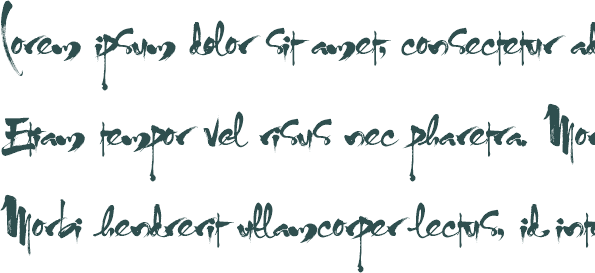 Lorem ipsum dolor sit amet, consectetur ad
Etiam tempor vel risus nec pharetra. Mor
Morbi hendrerit ullamcorper lectus, id int